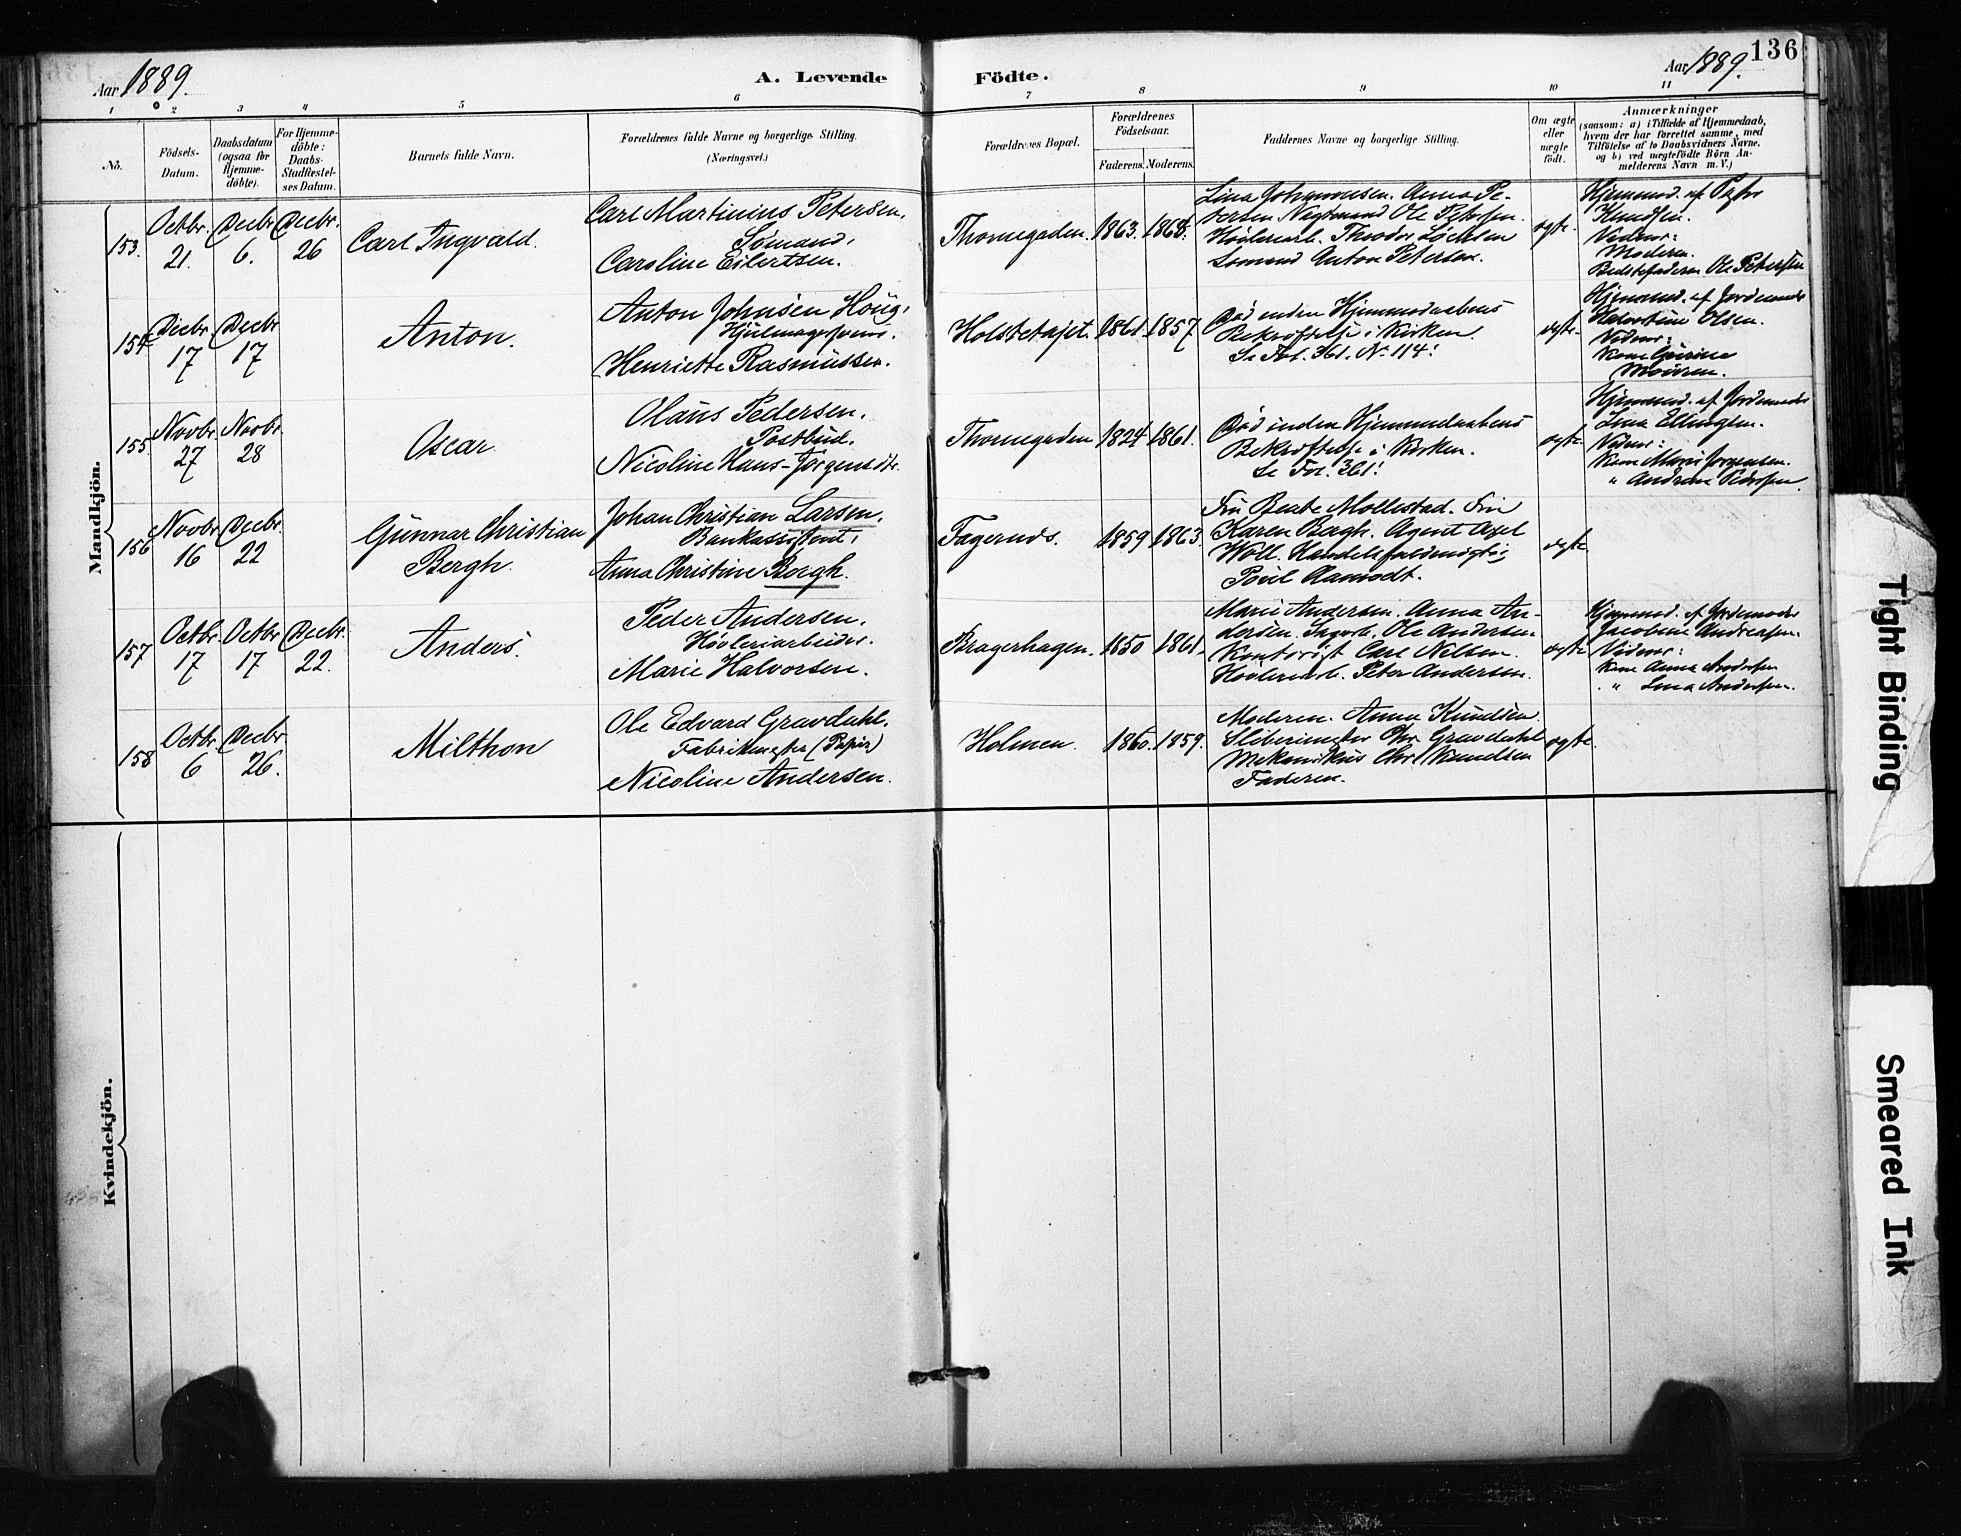 136
Aar 1889.
A. Levende Födte.
Aar 1889.
1 2 3 4 5 6 7 8 9 10 11
No.
Födsels-
Datum.
Daabsdatum
(ogsaa for
Hjemme-
döbte).
For Hjemme-
döbte:
Daabs-
Stadfæstel-
ses Datum.
Barnets fulde Navn.
Forældrenes fulde Navne og borgerlige Stilling.
(Næringsvei.)
Forældrenes Bopæl.
Forældrenes
Födselsaar.
Faderens. Moderens.
Faddernes Navne og borgerlige Stilling.
Om ægte
eller
uægte
födt.
Anmærkninger
(saasom: a) i Tilfælde af Hjemmedaab,
hvem der har forrettet samme, med
Tilföielse af to Daabsvidners Navne.
og b) ved uægtefödte Börn An-
melderens Navn m. V.)
Mandkjön.
153.
Octbr.
21.
Decbr
6.
Decbr.
26
Carl Ingvald.
Carl Martinius Petersen,
Sømand,
Caroline Eilertsen.
Thornegaden.
1863.
1868.
Lina Johannesen. Anna Pe-
tersen. Ole Petersen
Høvleriarb. Theodor
Sømand Anton Petersen.
ægte.
Hjemmed. af Pastor
Knudsen.
Vidner:
Moderen.
Bedstefaderen Ole Petersen
154
Decbr
17
Decbr
17
Anton.
Anton Johnsen Houg,
Hjulmagersvend.
Henriette Rasmussen.
Holstetajet.
1861.
1857
Død inden Hjemmedaabens
Bekræftelse i Kirken.
Se Fol. 361. No 114.
ægte.
Hjemmed. af Jordemoder
Olsen.
Vidner:
Kone
155
Novbr.
27
Novbr.
28
Oscar
Olaus Pedersen,
Postbud.
Nicoline Hans-Jørgensdtr.
Thornegaden
1824
1861.
Død inden Hjemmedaabens
Bekræftelse i Kirken.
Se Fol. 361.
ægte.
Hjemmed. af Jordemoder
Lina Ellingsen.
Vidner:
Kone Marie Jørgensen.
" Andrea Pedersen.
156
Novbr.
16
Decbr.
22
Gunnar Christian
Bergh.
Johan Christian Larsen,
Bankassistent,
Anna Christine Bergh.
Fagernes.
1859
1863.
Fru Beate Mollestad. Fru
Karen Bergh. Agent Axel
Woll. Handelsfuldmægtig
Poul Aamodt.
ægte.
157
Octbr.
17
Octbr
17
Decbr.
22.
Anders.
Peder Andersen.
Høvleriarbeider.
Marie Halvorsen.
Bragerhagen.
1850
1861.
Marie Andersen. Anna An-
dersen. Sagarb. Ole Andersen
Kontorist Carl Nilsen.
Høvleriarb. Peter Andersen.
ægte
Hjemmed. af Jordemoder
Jacobine Andreassen.
Vidner:
Kone Anna Andersen
" Lina Andersen.
158
Octbr.
6
Decbr.
26.
Milthon
Ole Edvard Gravdahl.
Fabrikmester (Papir)
Nicoline Andersen.
Holmen.
1860.
1859.
Moderen. Anna Knudsen.
Sliberimester Chr. Gravdahl
Mekanikus Chr. Knudsen
Faderen.
ægte.
Kvindekjön.
Tight Binding
Smeared Ink